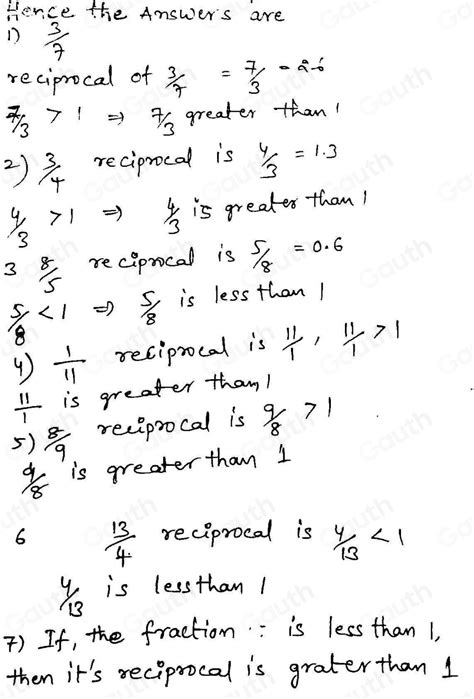 Hence the Answers are
1) 3/7
reciprocal of 3/7 = 7/3 = 2.6
7/3 > 1 ⇒ 7/3 greater than 1
2) 3/4 reciprocal is 4/3 = 1.3
4/3 > 1 ⇒ 4/3 is greater than 1
3 8/5 reciprocal is 5/8 = 0.6
5/8 < 1 ⇒ 5/8 is less than 1
4) 1/11 reciprocal is 11/1, 11/1 > 1
11/1 is greater than 1
5) 8/9 reciprocal is 9/8 > 1
9/8 is greater than 1
6 13/4 reciprocal is 4/13 < 1
4/13 is less than 1
7) If, the fraction is less than 1,
then it's reciprocal is grater than 1